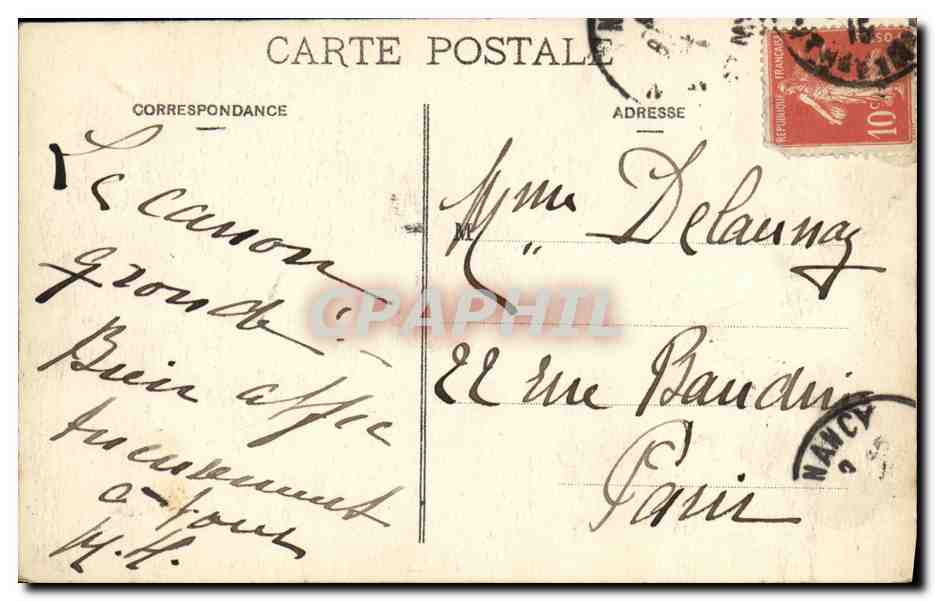 CARTE POSTALE
CORRESPONDANCE
Le canon
gronde
Bien affec
tueusement
à tous
M. H.
ADRESSE
Mme Delaunay
22 rue Baudin
Paris
REPUBLIQUE FRANÇAISE
10c
NANCY
CPAPHIL